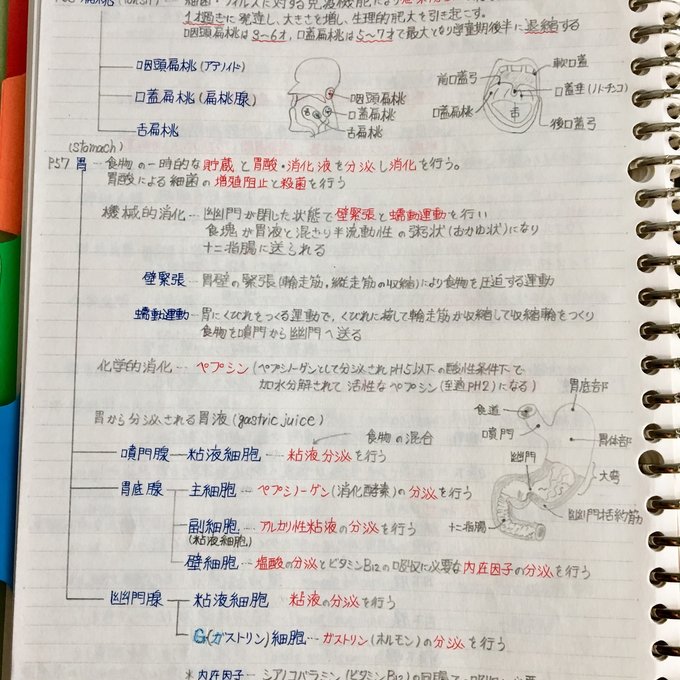 1才頃まで発達し、大きさを増し、生理的肥大を引き起こす。
咽頭扁桃は3~6才、口蓋扁桃は5~7才で最大となり学童期後半に退縮する
咽頭扁桃(アデノイド)
口蓋扁桃(扁桃腺)
舌扁桃
咽頭扁桃
口蓋扁桃
舌扁桃
前口蓋弓
口蓋扁桃
軟口蓋
口蓋垂(ノドチンコ)
後口蓋弓
舌
(stomach)
P57 胃…食物の一時的な貯蔵と胃酸・消化液を分泌し消化を行う。
胃酸による細菌の増殖阻止と殺菌を行う
機械的消化…幽門が閉じた状態で壁緊張と蠕動運動を行い
食塊が胃液と混ざり半流動性の粥状(おかゆ状)になり
十二指腸に送られる
壁緊張…胃壁の緊張(輪走筋,縦走筋の収縮)により食物を圧迫する運動
蠕動運動…胃にくびれをつくる運動で、くびれに接して輪走筋が収縮して収縮輪をつくり
食物を噴門から幽門へ送る
化学的消化…ペプシン(ペプシノーゲンとして分泌されPH5以下の酸性条件下で
加水分解されて活性なペプシン(至適PH2)になる)
胃から分泌される胃液(gastric juice)
食物の混合
噴門腺―粘液細胞…粘液分泌を行う
胃底腺―主細胞…ペプシノーゲン(消化酵素)の分泌を行う
副細胞…アルカリ性粘液の分泌を行う
(粘液細胞)
壁細胞…塩酸の分泌とビタミンB12の吸収に必要な内在因子の分泌を行う
幽門腺―粘液細胞 粘液の分泌を行う
G(ガストリン)細胞…ガストリン(ホルモン)の分泌を行う
食道
噴門
幽門
十二指腸
胃底部
胃体部
大弯
幽門括約筋
*内在因子…シアノコバラミン(ビタミンB12)の